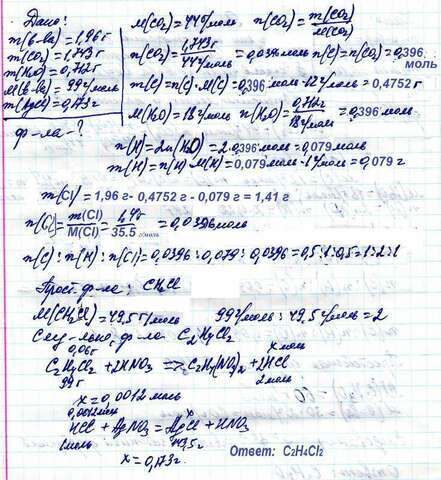 Дано:
m(в-ва) = 1,96г
m(CO₂) = 1,743г
m(H₂O) = 0,712г
M(в-ва) = 99г/моль
m(AgCl) = 0,173г
ф-ла - ?
M(CO₂) = 44г/моль n(CO₂) = m(CO₂)/M(CO₂)
n(CO₂) = 1,743г/44г/моль = 0,0396 моль n(C) = n(CO₂) = 0,396 моль
m(C) = n(C)·M(C) = 0,396 моль·12г/моль = 0,4752 г
M(H₂O) = 18г/моль n(H₂O) = 0,712г/18г/моль = 0,396 моль
n(H) = 2n(H₂O) = 2·0,396 моль = 0,079 моль
m(H) = n(H)·M(H) = 0,079 моль·1г/моль = 0,079 г
m(Cl) = 1,96 г- 0,4752 г - 0,079 г = 1,41 г
n(Cl) = m(Cl)/M(Cl) = 1,41г/35.5 г/моль = 0,0396моль
n(C) : n(H) : n(Cl) = 0,0396 : 0,079 : 0,0396 = 0,5:1:0,5 = 1:2:1
Прост. ф-ла: CH₂Cl
M(CH₂Cl) = 49,5г/моль 99г/моль : 49,5г/моль = 2
ф-ла C₂H₄Cl₂
0,06г x моль
C₂H₄Cl₂ + 2HNO₃ => C₂H₄(NO₃)₂ + 2HCl
99г 2моль
x = 0,0012 моль
0,0012моль x
HCl + AgNO₃ = AgCl + HNO₃
1моль 143,5г
x = 0,173г.
Ответ: C₂H₄Cl₂